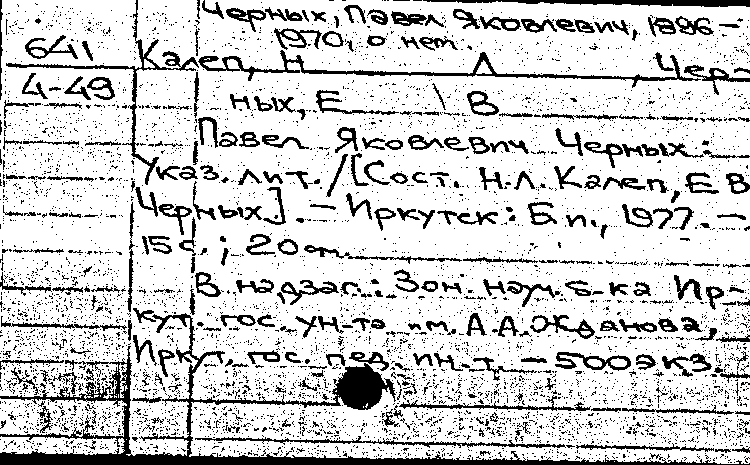 Черных, Павел Яковлевич, 1896–
1970, о нем.
641 Калеп, Н Л , Чер-
4-49
ных, Е В
Павел Яковлевич Черных :
Указ. лит. / [Сост. Н.Л. Калеп, Е В
Черных]. – Иркутск : Б.и., 1977. –
15 с. ; 20 см.
В надзаг.: Зон. науч. б-ка Ир-
кут. гос. ун-та им. А.А. Жданова,
Иркут. гос. пед. ин-т. – 500 экз.